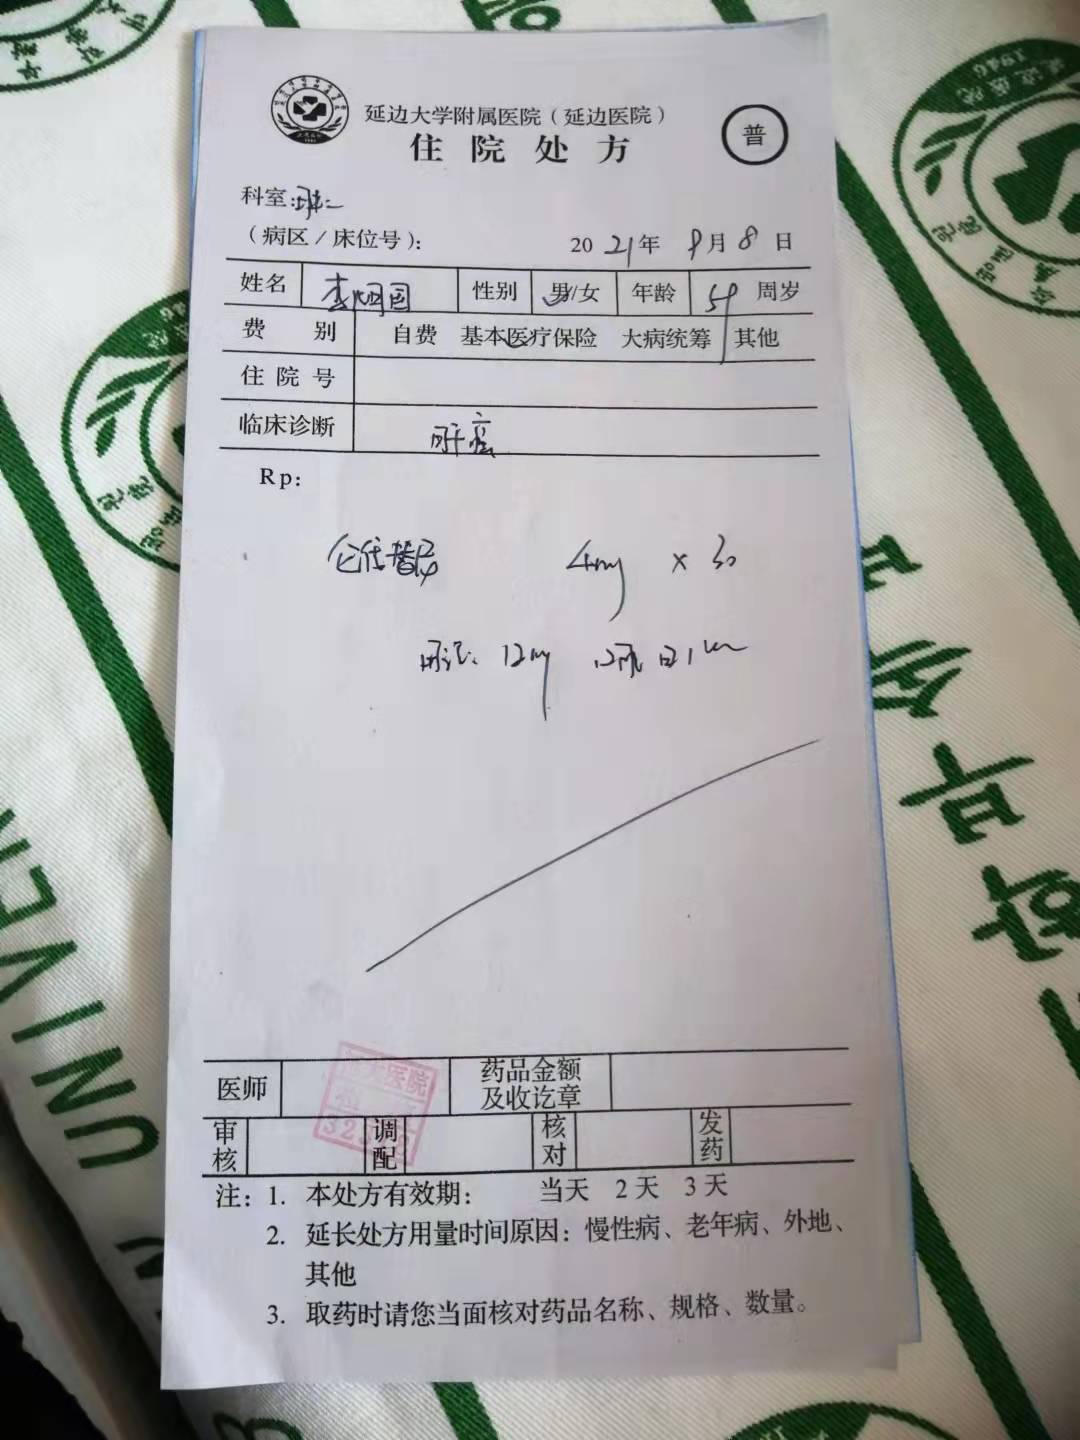 延边大学附属医院（延边医院）
住院处方
普
科室:
（病区/床位号）：
2021年 9月8日
姓名 李 国 性别 男/女 年龄 59 周岁
费别 自费 基本医疗保险 大病统筹 其他
住院号
临床诊断 肝癌
Rp:
仑伐替尼 4mg × 30
用法: 12mg 口服 日1次
医师 药品金额及收讫章
审核 调配 核对 发药
注：1. 本处方有效期： 当天 2天 3天
2. 延长处方用量时间原因：慢性病、老年病、外地、
其他
3. 取药时请您当面核对药品名称、规格、数量。
1946
UNIVER